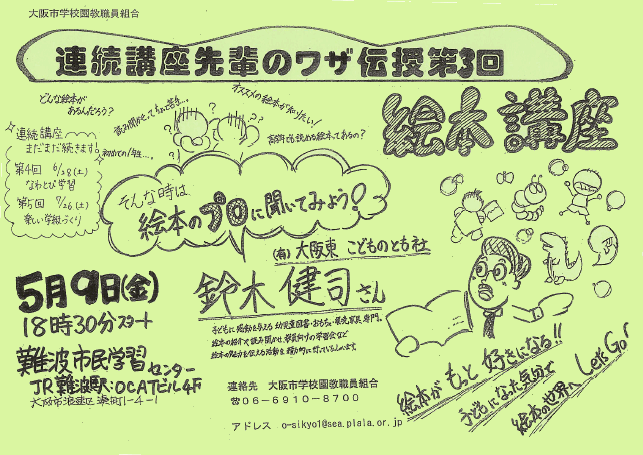 大阪市学校園教職員組合
連続講座先輩のワザ伝授第3回
絵本講座
どんな絵本が
あるんだろう?
読み聞かせってちょっと苦手…。
オススメの絵本が知りたい!
高学年でも読める絵本ってあるの?
初めての1年生…。
連続講座
まだまだ続きます!
第4回 6/28(土)
なわとび学習
第5回 7/26(土)
楽しい学級づくり
そんな時は、
絵本のプロに聞いてみよう!
(有)大阪東 こどものとも社
鈴木 健司さん
5月9日(金)
18時30分スタート
難波市民学習センター
JR難波駅・OCATビル4F
大阪市浪速区湊町1-4-1
絵本の魅力を伝える活動を精力的に行っています。
連絡先 大阪市学校園教職員組合
☎06-6910-8700
アドレス o-sikyo1@sea.plala.or.jp
絵本が もっと 好きになる!!
子どもになった気分で
絵本の世界へ Let's Go!